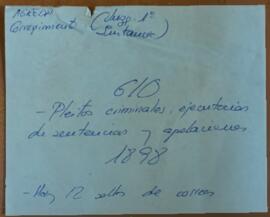 (Juzg. 1ª
Instancia)
610
- Pleitos criminales, ejecutorias
de sentencias y apelaciones
1898
- Hay 12 sellos de correos